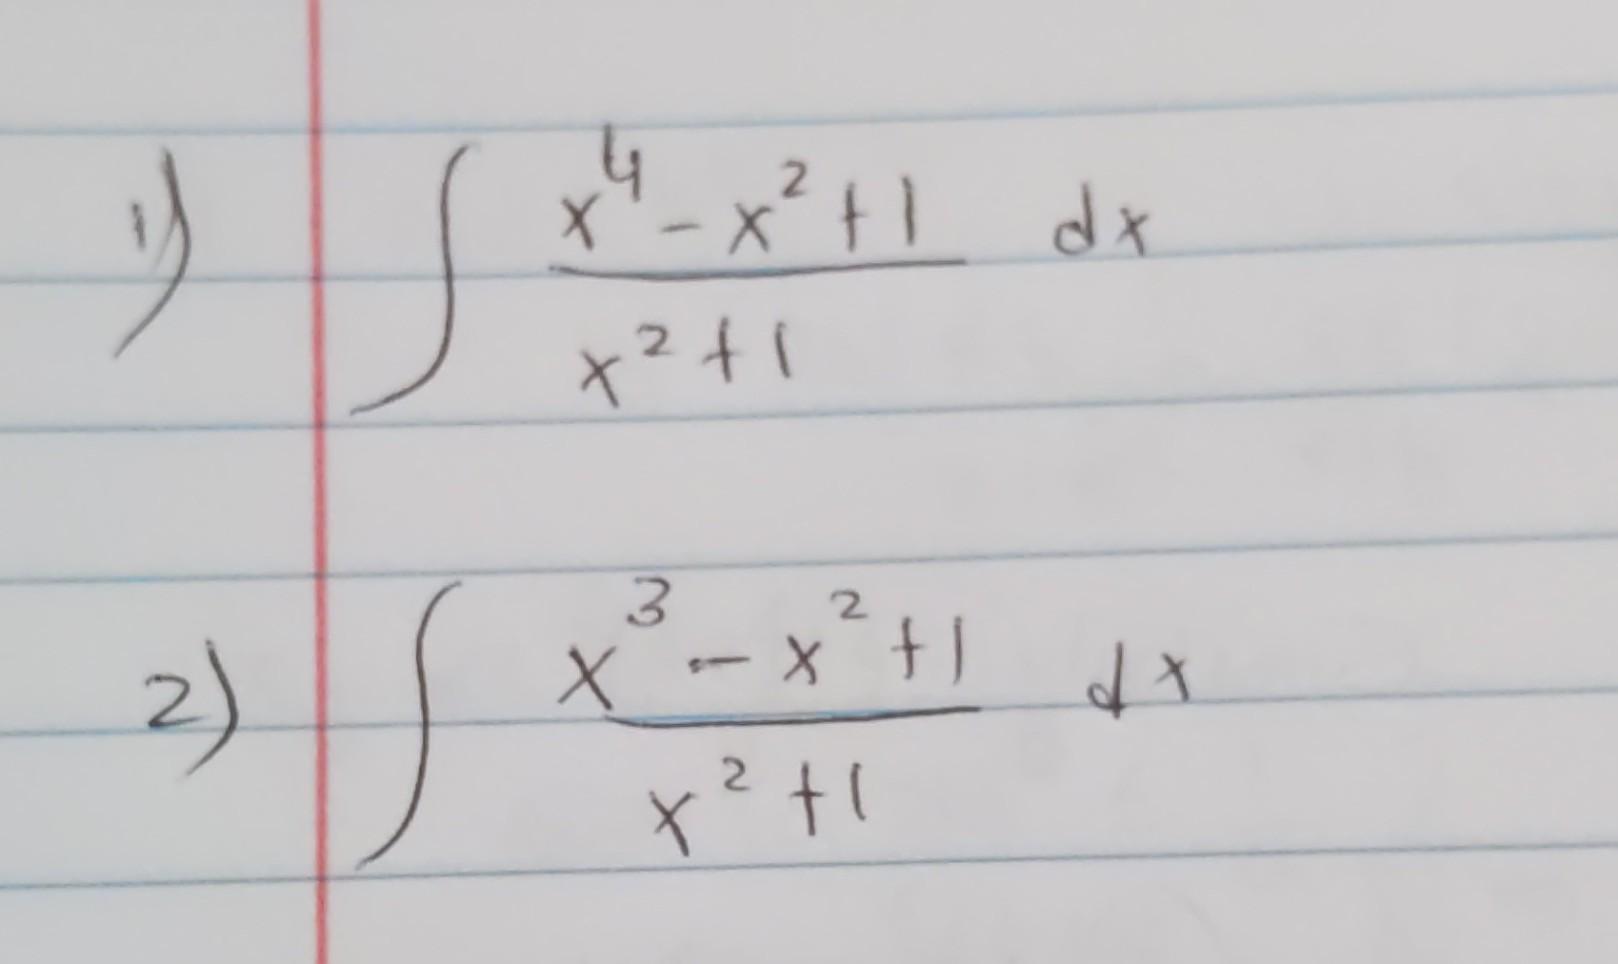 1) ∫ (x⁴ - x² + 1)/(x² + 1) dx
2) ∫ (x³ - x² + 1)/(x² + 1) dx